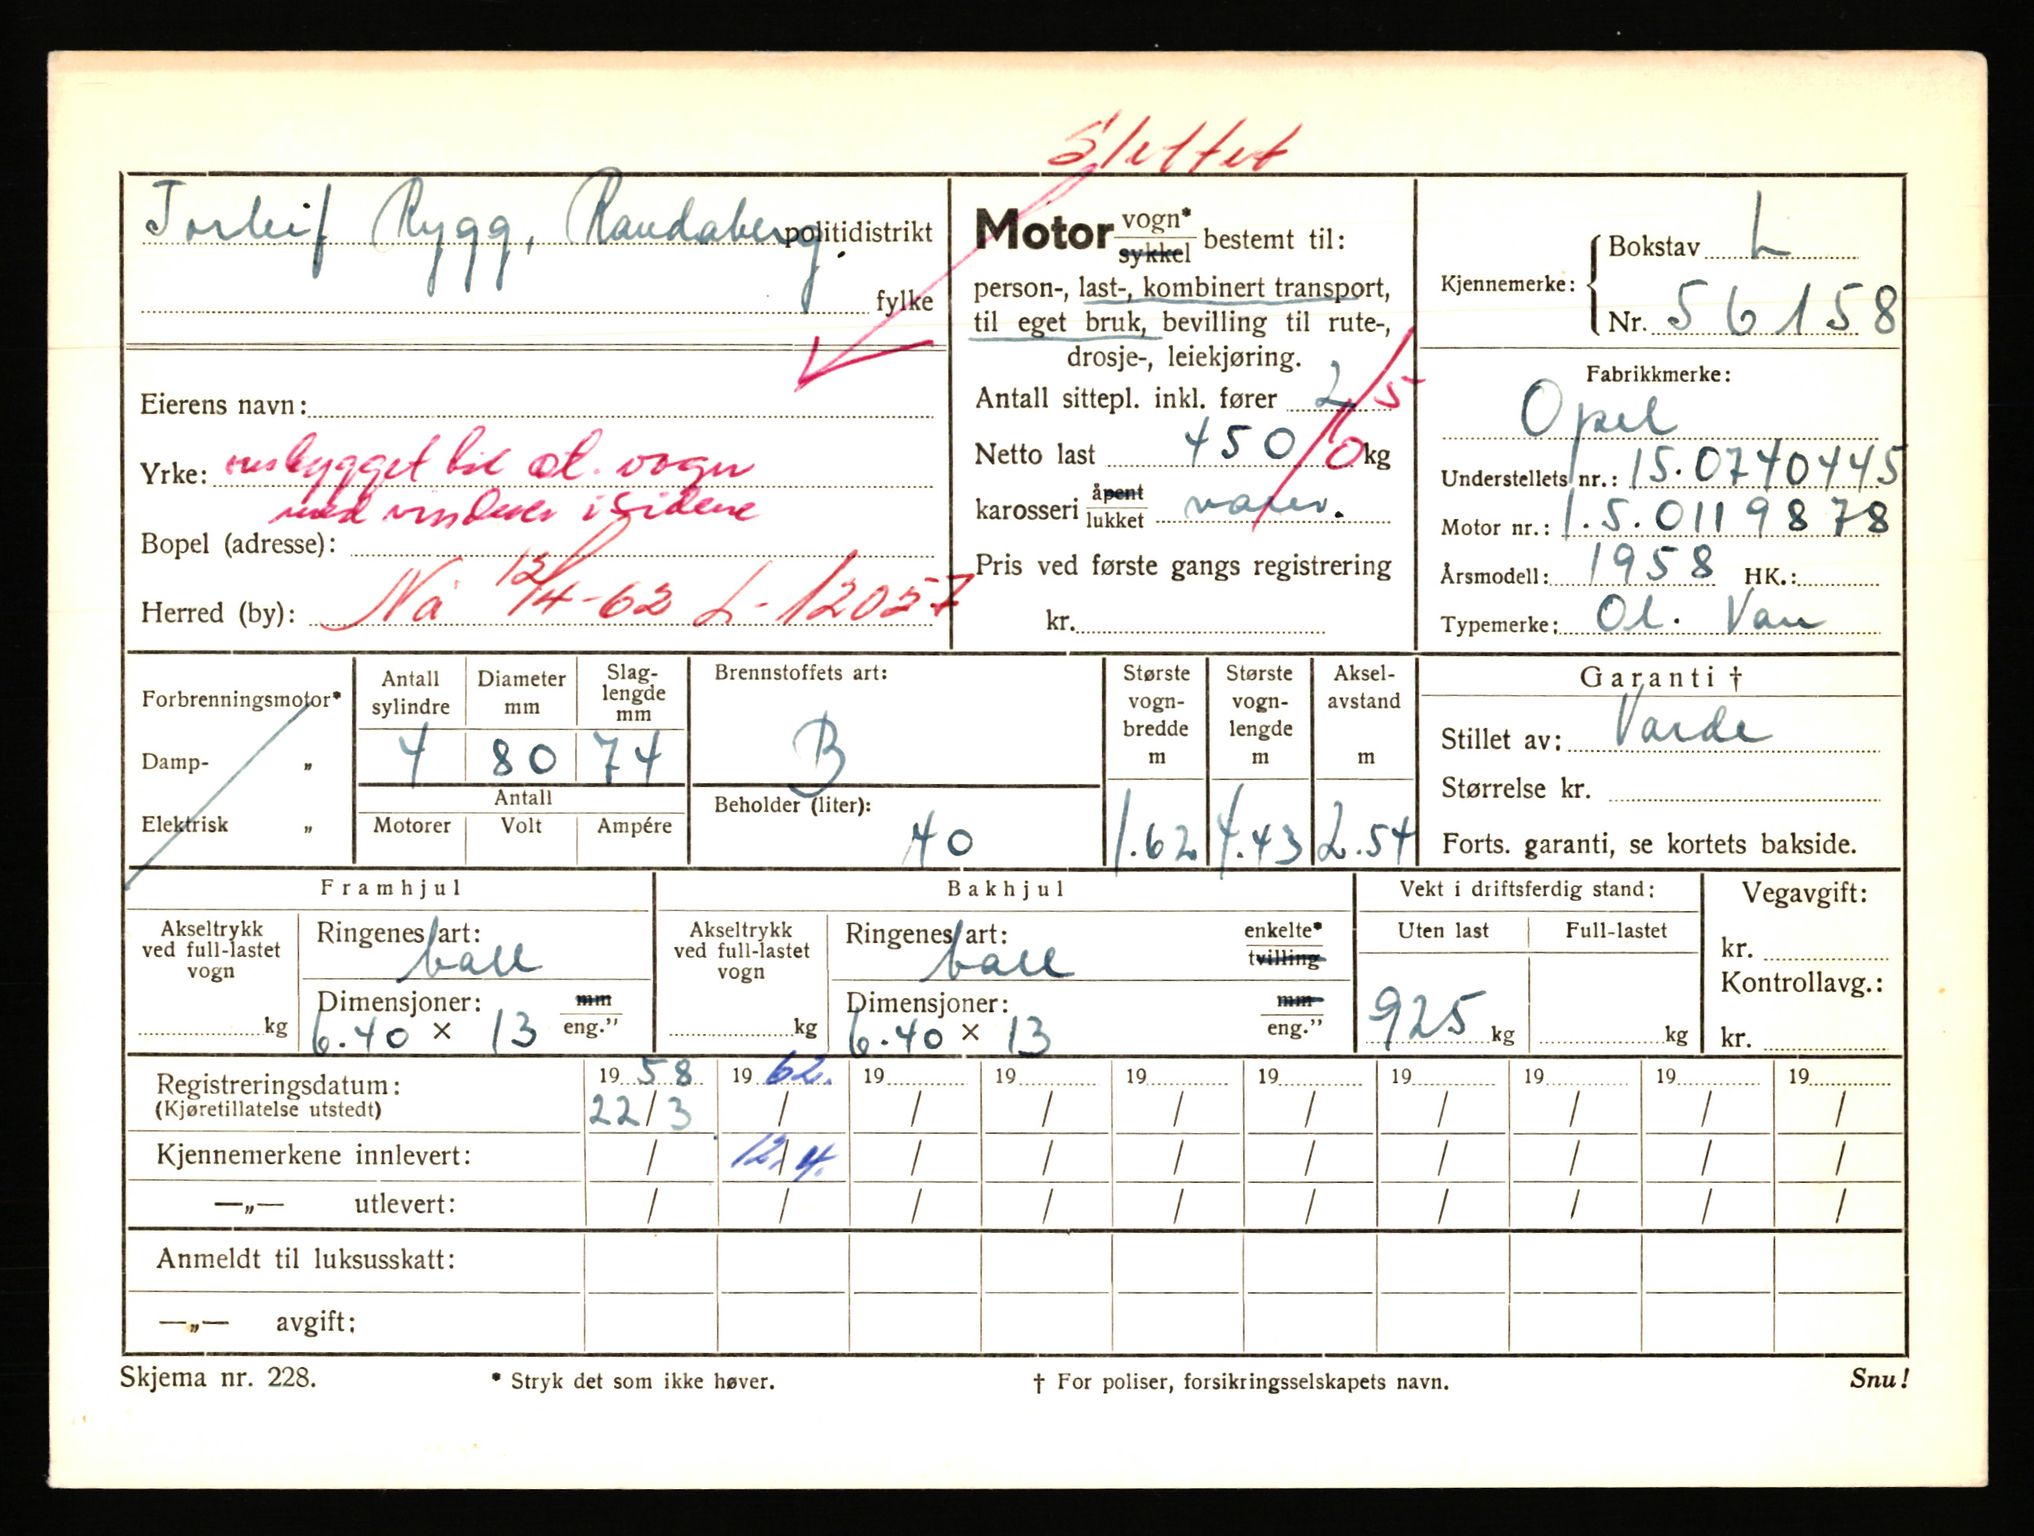 Slettet
Torleif Rygg, Randaberg.
politidistrikt
fylke
Eierens navn:
Yrke: ombygget til st. vogn
med vinduer i sidene
Bopel (adresse):
Herred (by): Nå 12/4-62 L-12057
Motor vogn* sykkel bestemt til:
person-, last-, kombinert transport,
til eget bruk, bevilling til rute-,
drosje-, leiekjøring.
Antall sittepl. inkl. fører 2/5
Netto last 450/0 kg
karosseri åpent lukket varev.
Pris ved første gangs registrering
kr.
Kjennemerke: Bokstav L
Nr. 56158
Fabrikkmerke:
Opel
Understellets nr.: 15.0740445
Motor nr.: 1.5.0119878
Årsmodell: 1958 HK.:
Typemerke: Ol. Van
Forbrenningsmotor*
Damp- „
Elektrisk „
Antall sylindre 4
Diameter mm 80
Slaglengde mm 74
Antall
Motorer Volt Ampére
Brennstoffets art:
B
Beholder (liter):
40
Største vognbredde m 1.62
Største vognlengde m 4.43
Akselavstand m 2.54
Garanti †
Stillet av: Varde
Størrelse kr.
Forts. garanti, se kortets bakside.
Framhjul
Akseltrykk ved full-lastet vogn
kg
Ringenes art: ball
Dimensjoner: mm
6.40 × 13 eng."
Bakhjul
Akseltrykk ved full-lastet vogn
kg
Ringenes art: ball enkelte* tvilling
Dimensjoner: mm
6.40 × 13 eng."
Vekt i driftsferdig stand:
Uten last Full-lastet
925 kg kg
Vegavgift:
kr.
Kontrollavg.:
kr.
Registreringsdatum: 1958 1962. 19 19 19 19 19 19 19 19
(Kjøretillatelse utstedt) 22/3 / / / / / / / / /
Kjennemerkene innlevert: / 12/4. / / / / / / / /
—„— utlevert: / / / / / / / / / /
Anmeldt til luksusskatt:
—„— avgift:
Skjema nr. 228. * Stryk det som ikke høver. † For poliser, forsikringsselskapets navn. Snu!